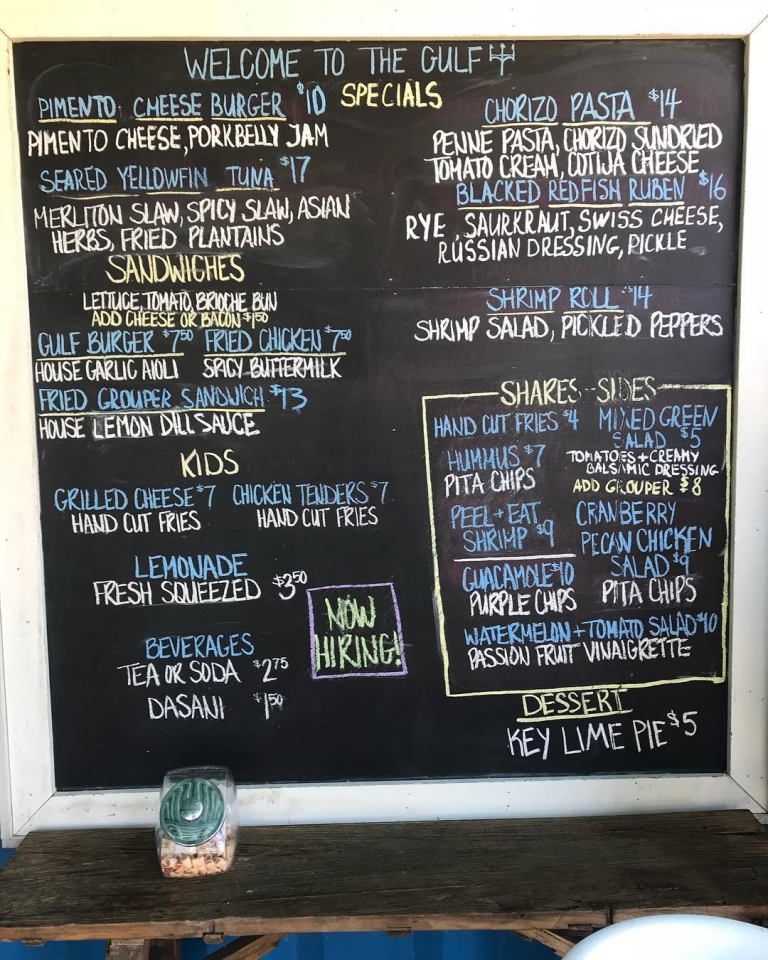 WELCOME TO THE GULF
SPECIALS
PIMENTO CHEESE BURGER $10
PIMENTO CHEESE, PORKBELLY JAM
SEARED YELLOWFIN TUNA $17
MERLITON SLAW, SPICY SLAW, ASIAN
HERBS, FRIED PLANTAINS
SANDWICHES
LETTUCE, TOMATO, BRIOCHE BUN
ADD CHEESE OR BACON $1.50
GULF BURGER $7.50 FRIED CHICKEN $7.50
HOUSE GARLIC AIOLI SPICY BUTTERMILK
FRIED GROUPER SANDWICH $13
HOUSE LEMON DILL SAUCE
KIDS
GRILLED CHEESE $7 CHICKEN TENDERS $7
HAND CUT FRIES HAND CUT FRIES
LEMONADE
FRESH SQUEEZED $3.50
NOW
HIRING!
BEVERAGES
TEA OR SODA $2.75
DASANI $1.50
CHORIZO PASTA $14
PENNE PASTA, CHORIZO SUNDRIED
TOMATO CREAM, COTIJA CHEESE
BLACKED REDFISH RUBEN $16
RYE, SAURKRAUT, SWISS CHEESE,
RUSSIAN DRESSING, PICKLE
SHRIMP ROLL $14
SHRIMP SALAD, PICKLED PEPPERS
SHARES-SIDES
HAND CUT FRIES $4
HUMMUS $7
PITA CHIPS
PEEL+EAT
SHRIMP $9
GUACAMOLE $10
PURPLE CHIPS
MIXED GREEN
SALAD $5
TOMATOES + CREAMY
BALSAMIC DRESSING
ADD GROUPER $8
CRANBERRY
PECAN CHICKEN
SALAD $9
PITA CHIPS
WATERMELON + TOMATO SALAD $10
PASSION FRUIT VINAIGRETTE
DESSERT
KEY LIME PIE $5